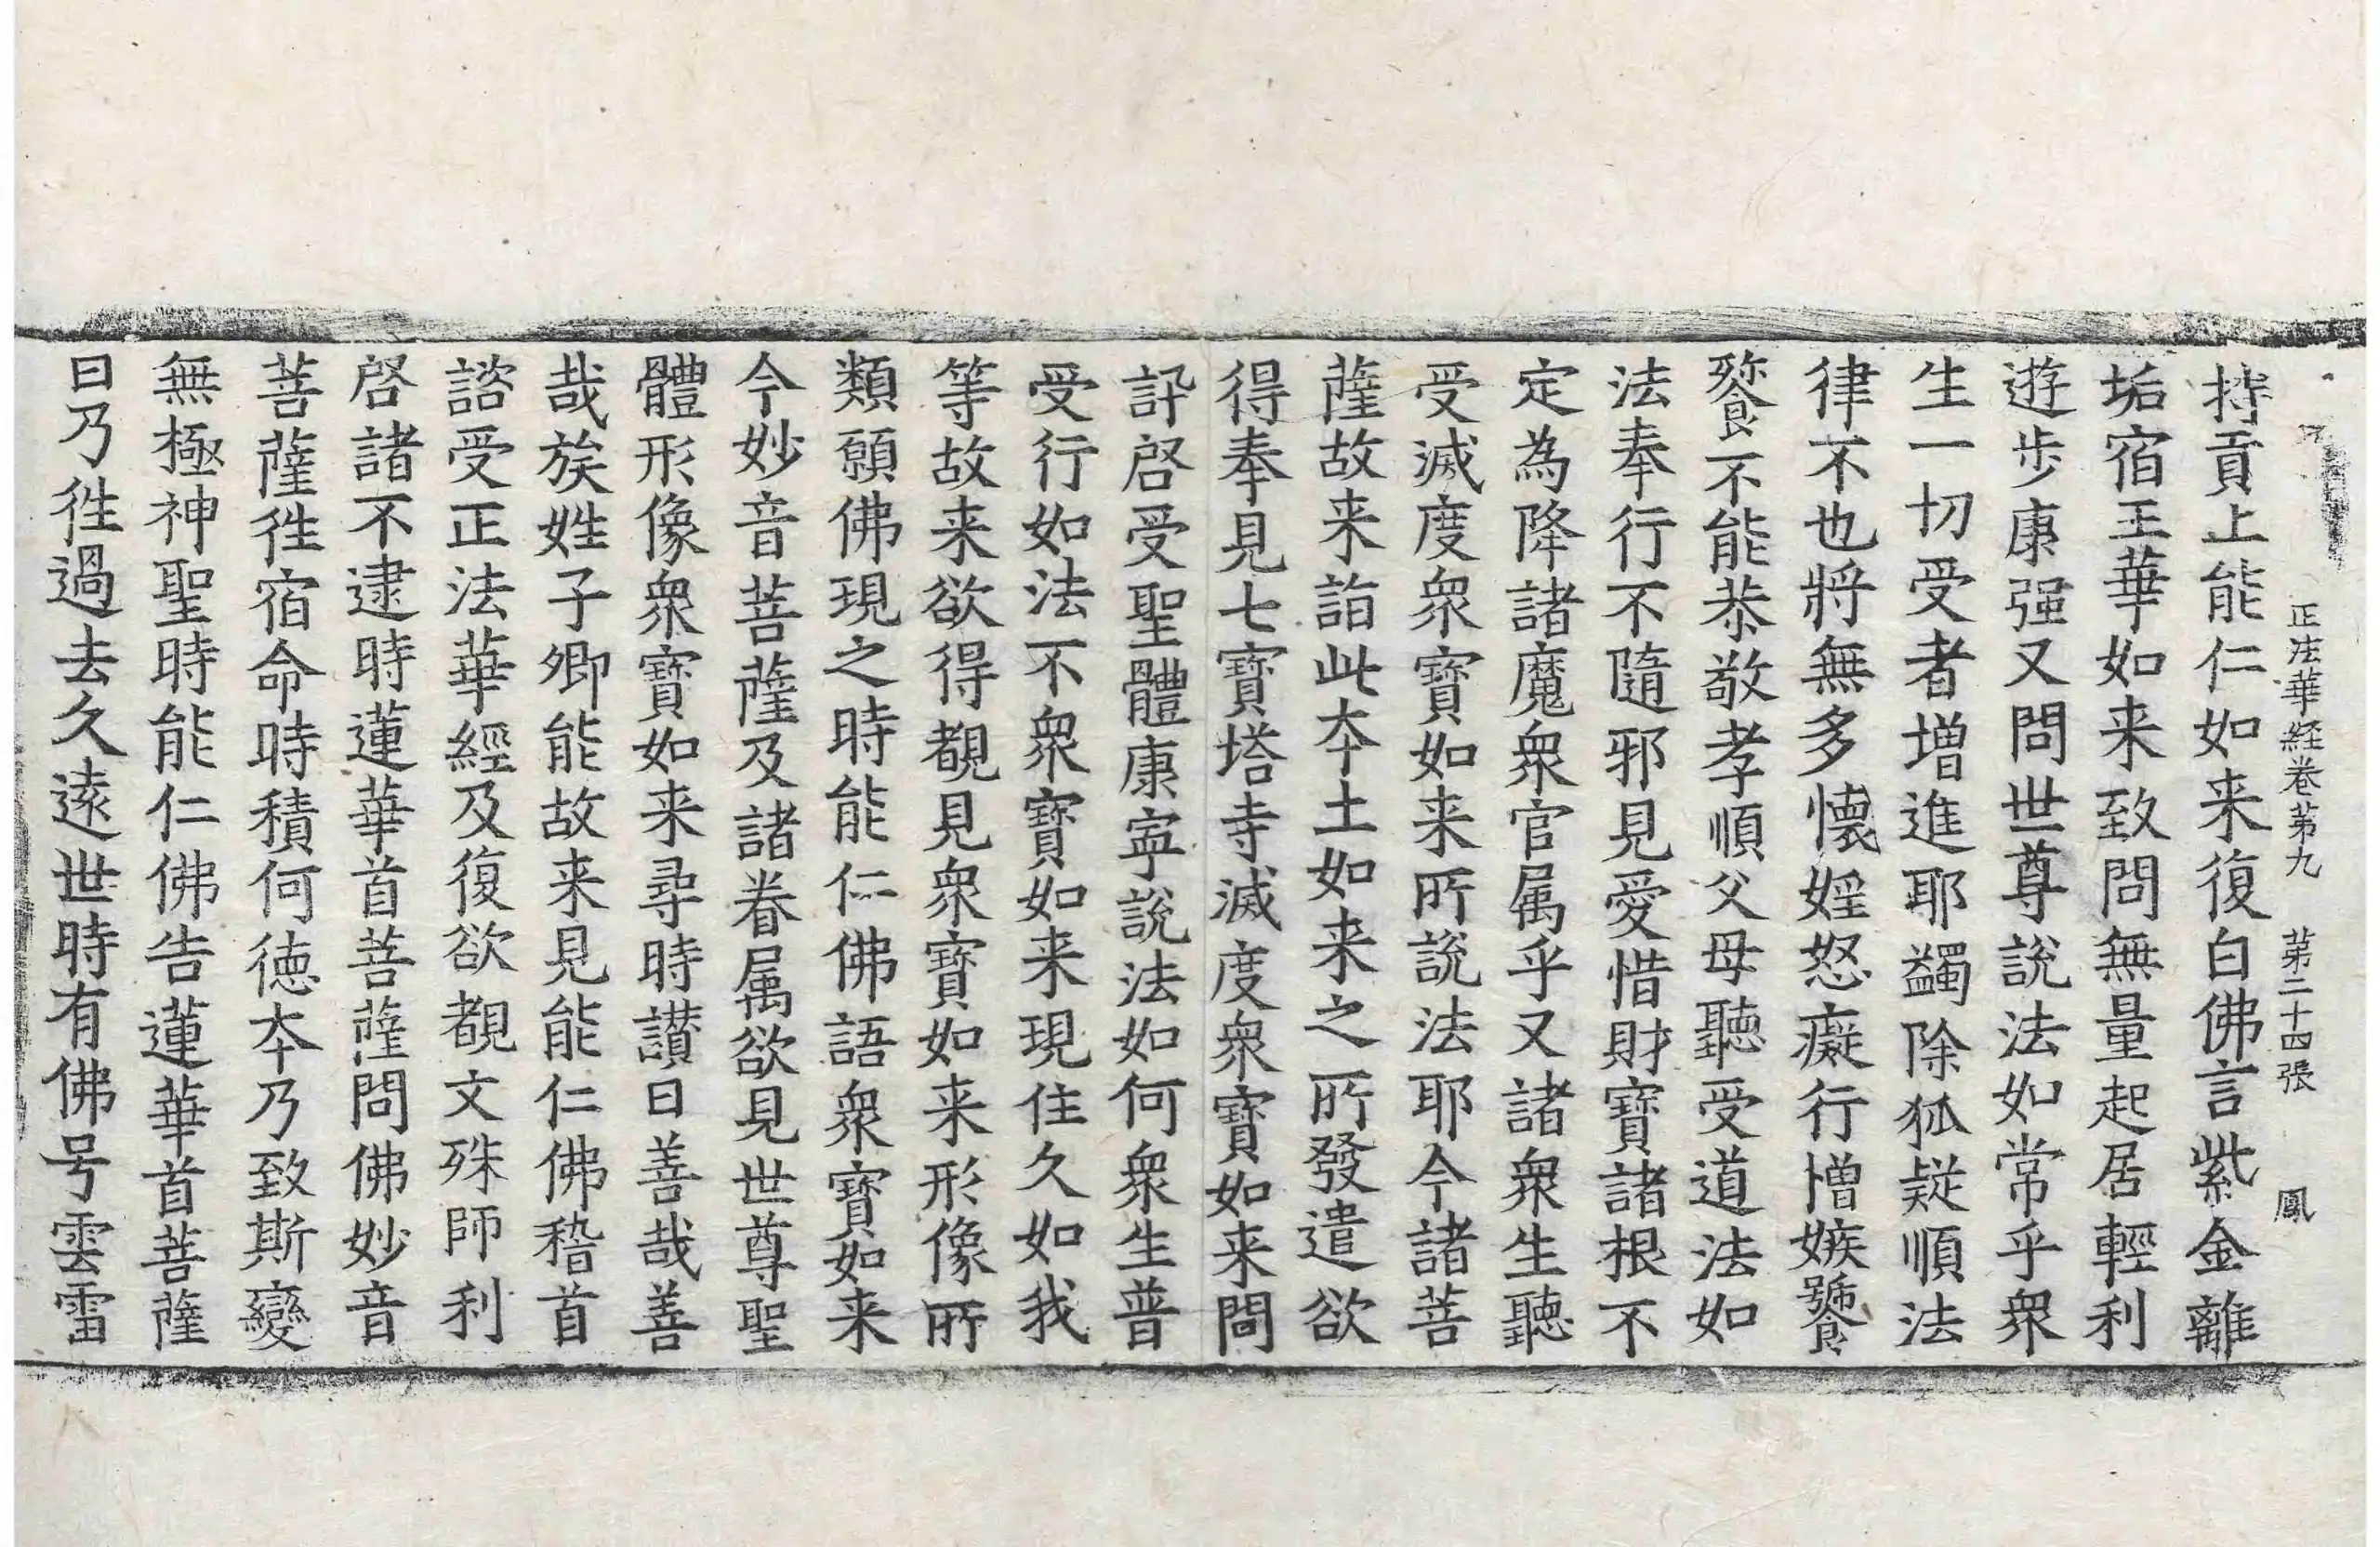 正法華経卷苐九　苐二十四張　鳳
持貢上能仁如来復白佛言紫金離
垢宿王華如来致問無量起居輕利
遊步康强又問世尊說法如常乎衆
生一切受者增進耶蠲除狐疑順法
律不也將無多懷婬怒癡行憎嫉饕
餮不能恭敬孝順父母聽受道法如
法奉行不隨邪見愛惜財寶諸根不
定為降諸魔衆官属乎又諸衆生聽
受滅度衆寶如来所說法耶今諸菩
薩故来詣此夲土如来之所發遣欲
得奉見七寶塔寺滅度衆寶如来問
訊啓受聖體康寧說法如何衆生普
受行如法不衆寶如来現住久如我
等故来欲得覩見衆寶如来形像所
類願佛現之時能仁佛語衆寶如来
今妙音菩薩及諸眷属欲見世尊聖
體形像衆寶如来尋時讃曰善哉善
哉族姓子卿能故来見能仁佛稽首
諮受正法華經及復欲覩文殊師利
啓諸不逮時蓮華首菩薩問佛妙音
菩薩徃宿命時積何德夲乃致斯變
無極神聖時能仁佛告蓮華首菩薩
曰乃徃過去久遠世時有佛号雲雷